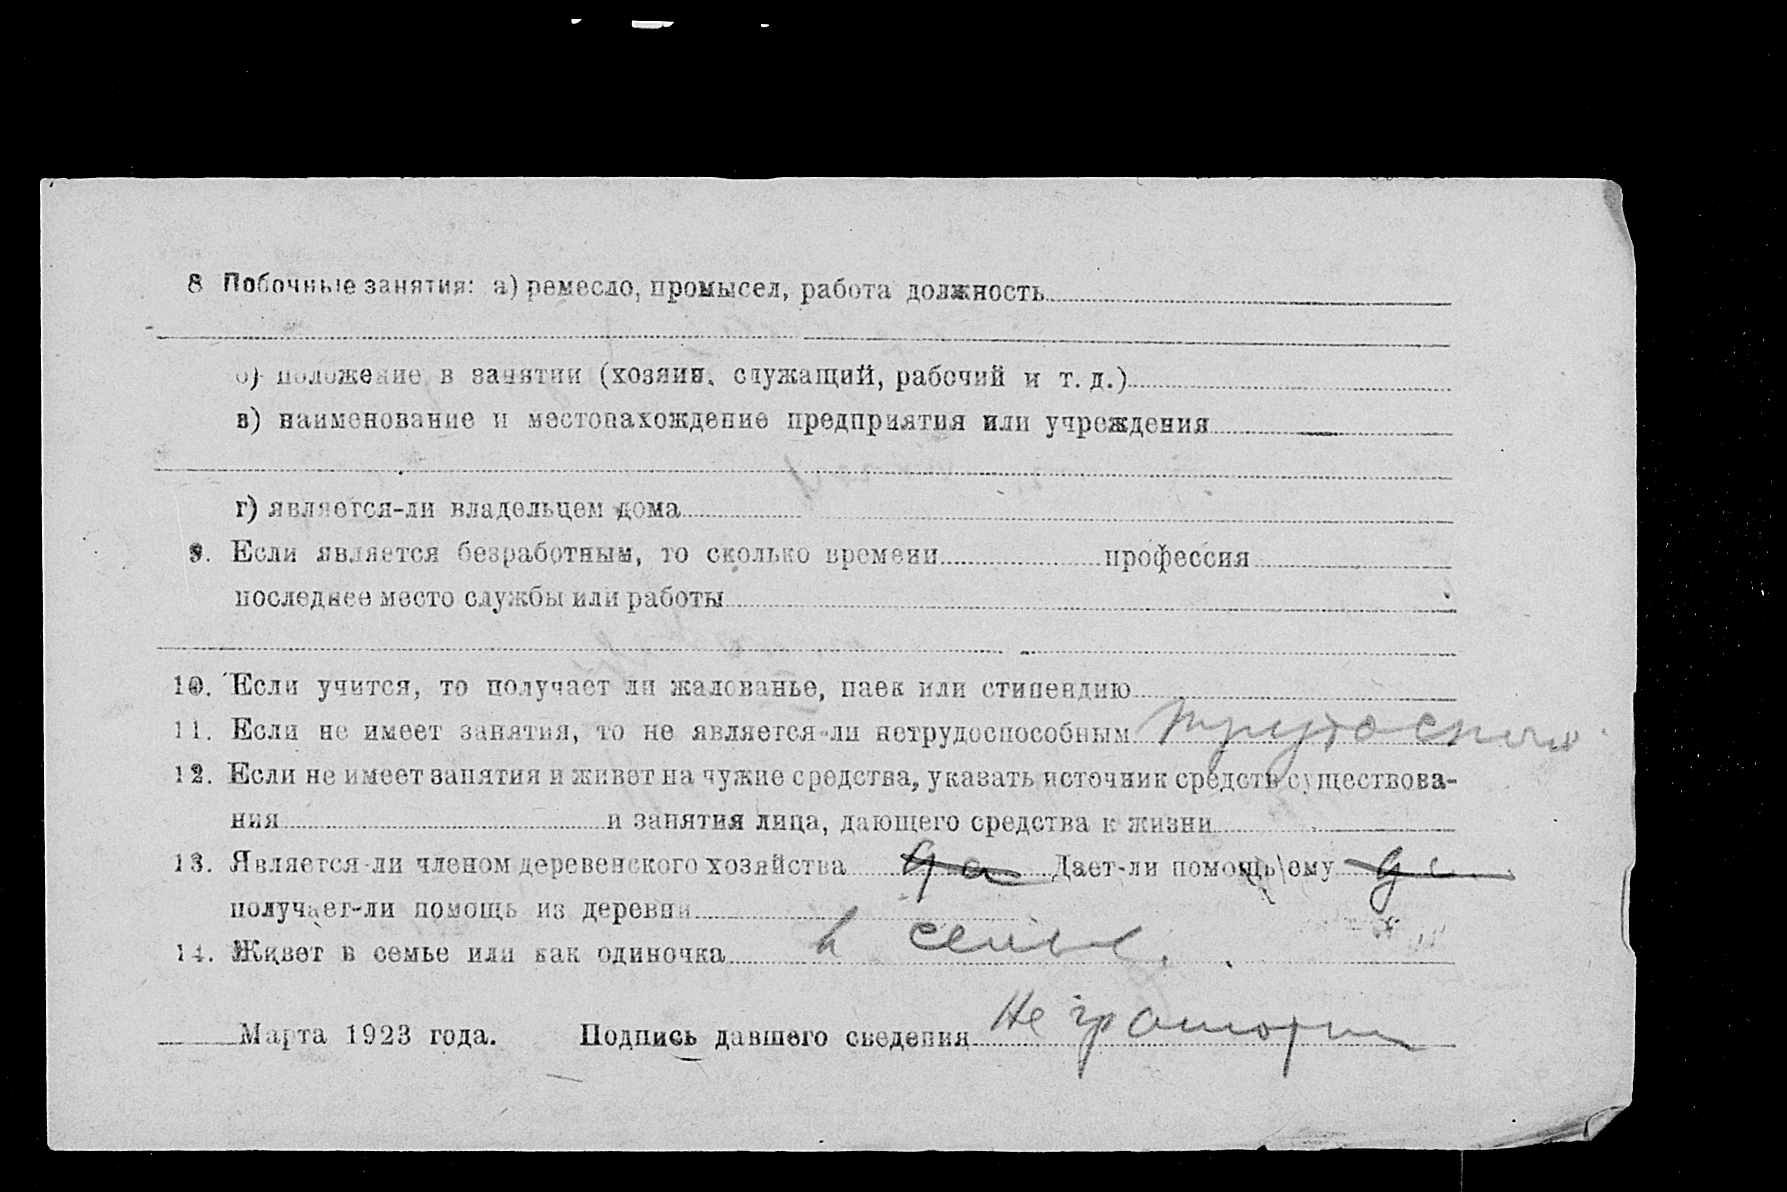 8 Побочные занятия: а) ремесло, промысел, работа должность
б) положение в занятии (хозяин, служащий, рабочий и т. д.)
в) наименование и местонахождение предприятия или учреждения
г) является-ли владельцем дома
9. Если является безработным, то сколько времени профессия
последнее место службы или работы
10. Если учится, то получает ли жалованье, паек или стипендию
11. Если не имеет занятия, то не является-ли нетрудоспособным
12. Если не имеет занятия и живет на чужие средства, указать источник средств существова-
ния и занятия лица, дающего средства к жизни
13. Является-ли членом деревенского хозяйства да Дает-ли помощь ему да
получает-ли помощь из деревни
14. Живет в семье или как одиночка в семье.
Марта 1923 года. Подпись давшего сведения Не грамотн